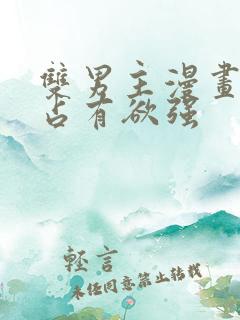 雙男主漫畫
占有欲强
輕言
未经同意禁止转载